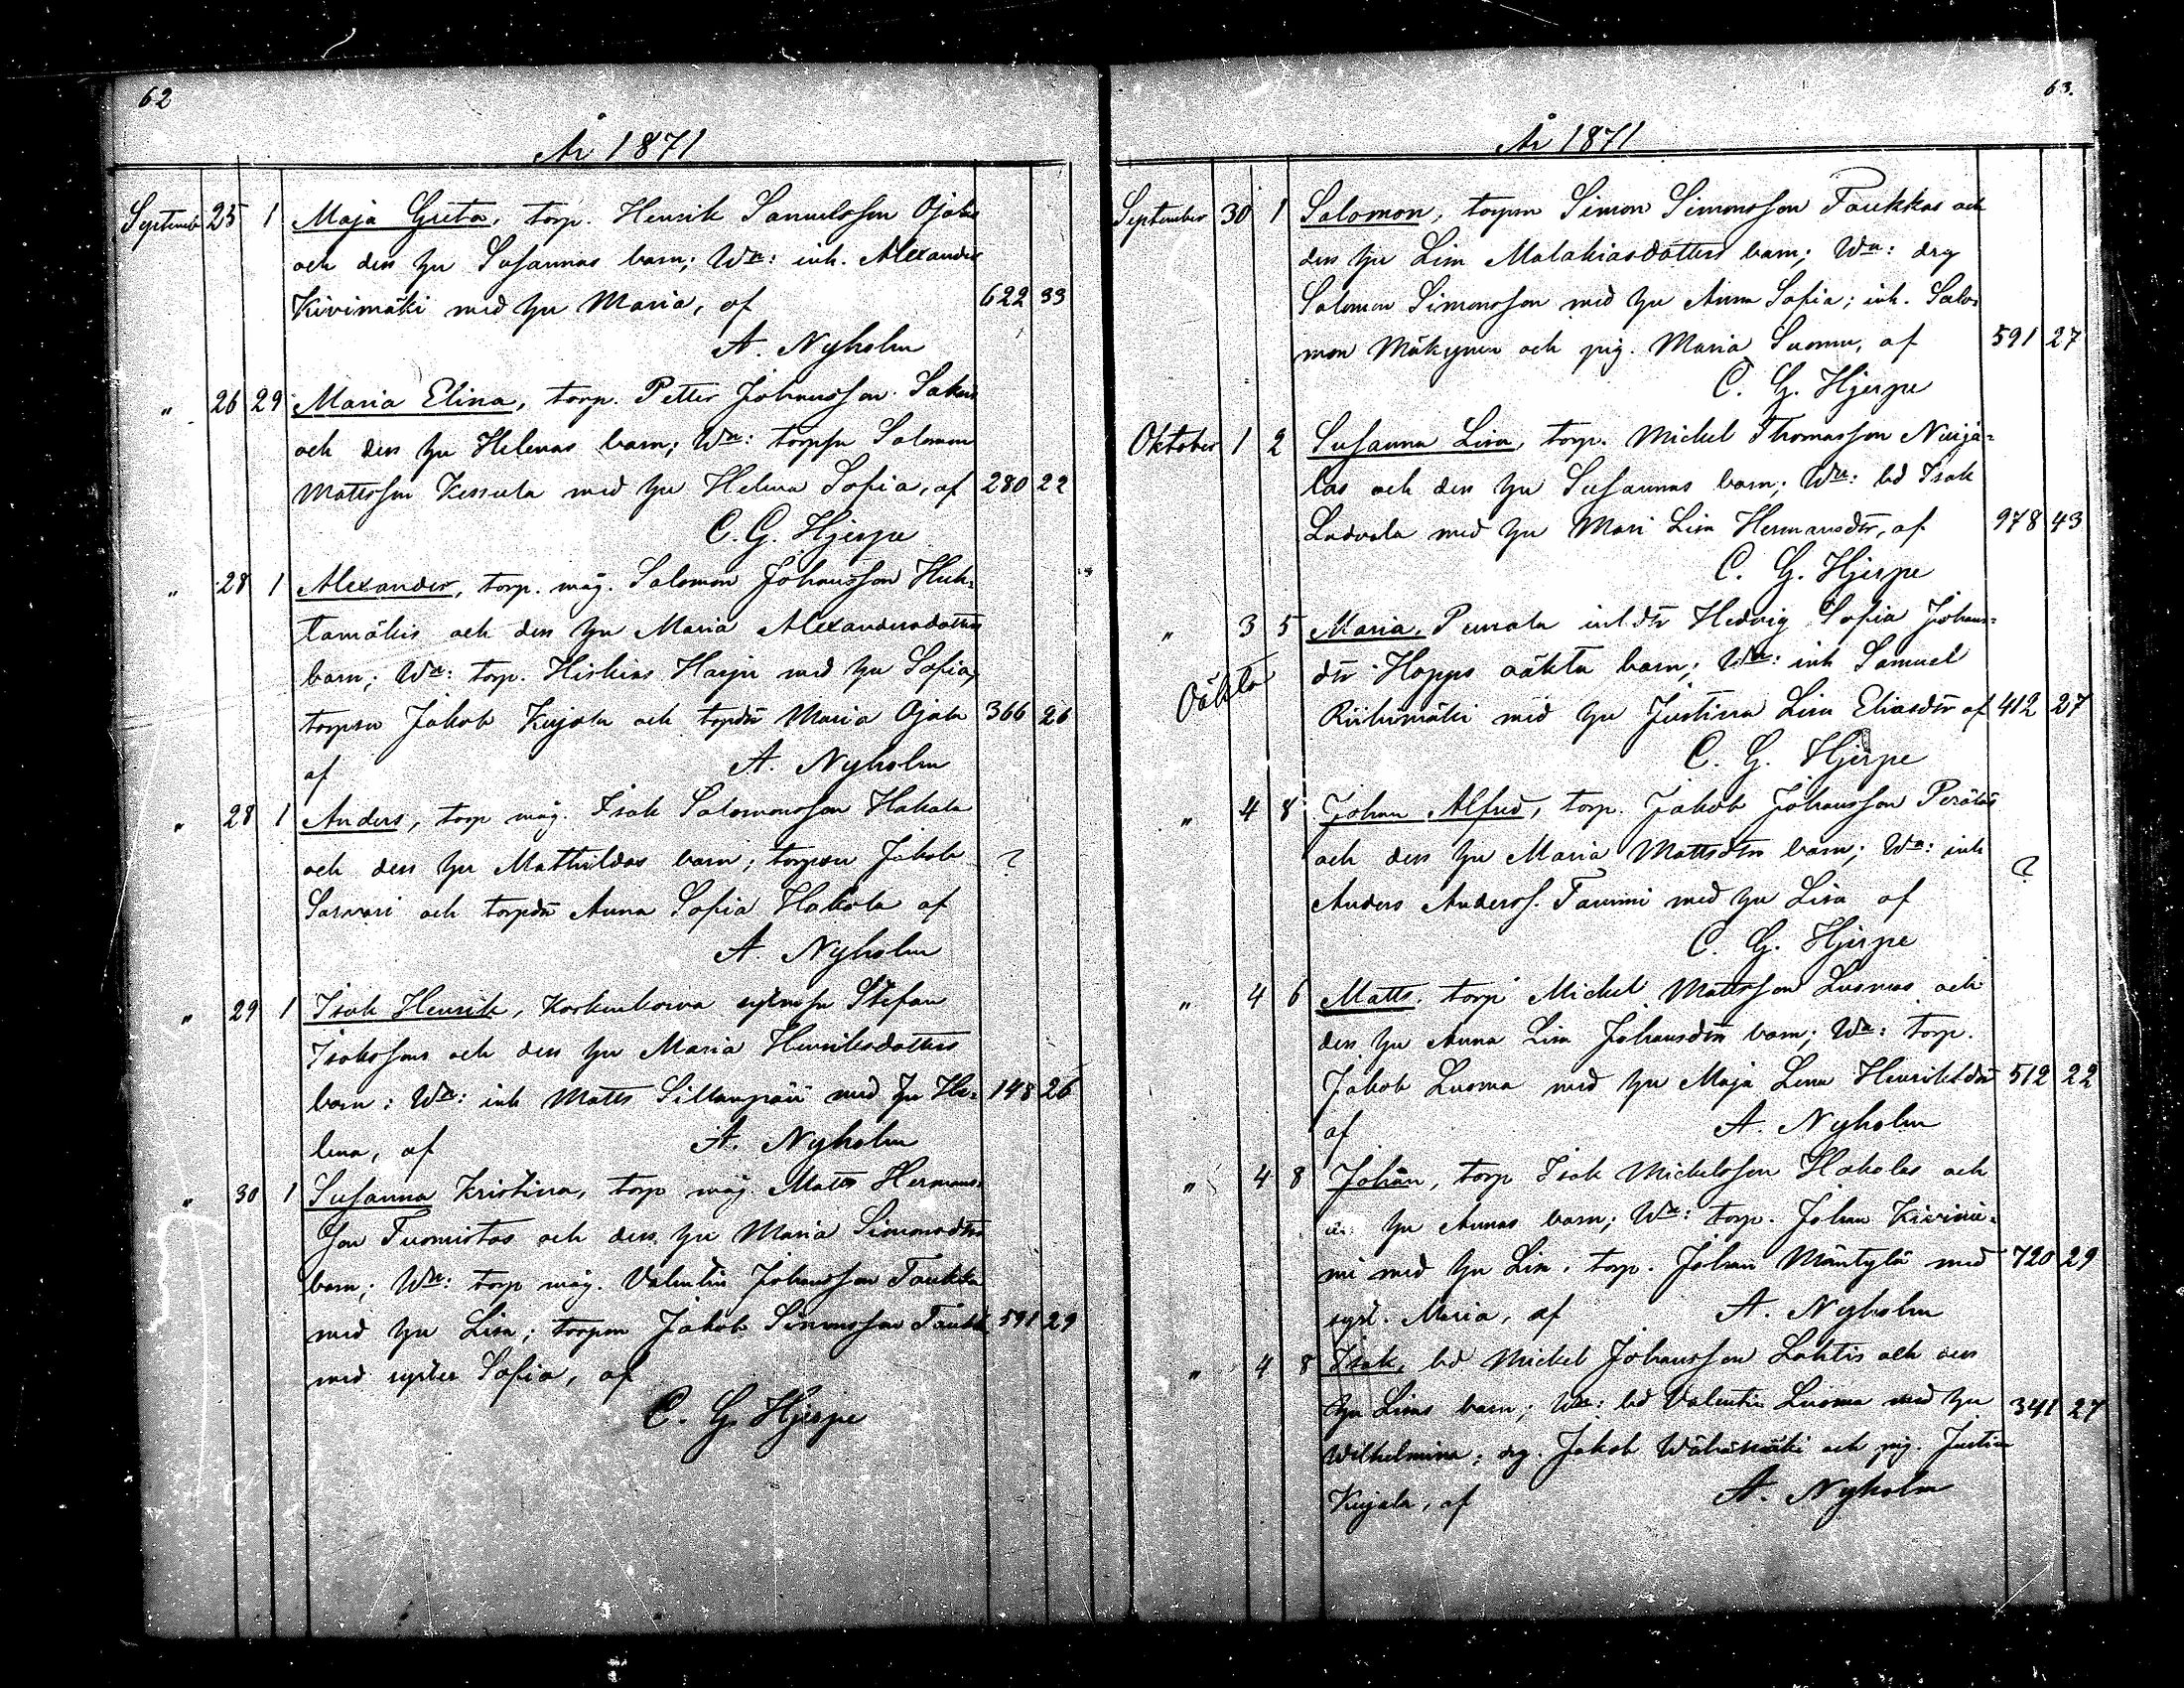 62
År 1871
Septemb 25 1 Maja Greta, torp. Henrik Samuelsson Ojalas
och dess hu Susannas barn; Wn: inh. Alexander
Kivimäki med hu Maria, af 622 33
A. Nyholm
" 26 29 Maria Elina, torp. Petter Johansson
och dess hu Helenas barn; Wn: Salomon
Mattsson med hu Helena Sofia, af 280 22
C. G. Hjerpe
" 28 1 Alexander, torp. måg. Salomon Johansson Huh-
tamäkis och dess hu Maria Alexandersdotters
barn; Wn: torp. Hiskias Harju med hu Sofia,
torpson Jakob Kujala och torpdr Maria Ojala 366 26
af A. Nyholm
" 28 1 Anders, torp måg. Isak Salomonsson Hakala
och dess hu Mathildas barn; torpson Jakob ?
Sarvari och torpdr Anna Sofia Hakola af
A. Nyholm
" 29 1 Isak Henrik, Korkiakorva Stefan
Isakssons och dess hu Maria Henriksdotters
barn: Wn: inh Matts Sillanpää med hu He- 148 26
lena, af A. Nyholm
" 30 1 Susanna Kristina, torp måg. Matts Hermans-
son Tuomistos och dess hu Maria Simonsdtrs
barn; Wn: torp måg. Valentin Johansson Taukka
med hu Lisa; torpson Jakob Simonsson Taukka 591 29
med syster Sofia, af
C. G. Hjerpe
63.
År 1871
September 30 1 Salomon, torpson Simon Simonsson Taukkas och
dess hu Lisa Malakiasdotters barn; Wn: drg
Salomon Simonsson med hu Anna Sofia; inh. Salo-
mon Mäkynen och pig. Maria Luoma, af 591 27
C. G. Hjerpe
Oktober 1 2 Susanna Lisa, torp. Mickel Thomasson Nuija-
las och dess hu Susannas barn; Wn: bd Isak
Ladvala med hu Mari Lisa Hermansdtr, af 978 43
C. G. Hjerpe
" 3 5 Maria, Purala inh dtr Hedvig Sofia Johans-
dtr Hopps oäkta barn; Wn: inh Samuel
Oäkta
Riihimäki med hu Justina Lisa Eliasdtr af 412 27
C. G. Hjerpe
" 4 8 Johan Alfred, torp. Jakob Johansson Peräläs
och dess hu Maria Mattsdtrs barn; Wn: inh
?
Anders Anderss. Tammi med hu Lisa af
C. G. Hjerpe
" 4 6 Matts, torp Mickel Mattsson Luomas och
dess hu Anna Lisa Johansdtrs barn; Wn: torp.
Jakob Luoma med hu Maja Lena Henriksdtr 512 22
af A. Nyholm
" 4 8 Johan, torp Isak Mickelsson Hakolas och
d: hu Annas barn; Wn: torp. Johan Kivinie-
mi med hu Lisa, torp. Johan Mäntylä med 720 29
syst. Maria, af A. Nyholm
" 4 8 Isak, bd Mickel Johansson Lahtis och dess
hu Lisas barn; Wn: bd Valentin Luoma med hu 341 27
Wilhelmina; drg. Jakob Wähämäki och pig. Justina
Kujala, af A. Nyholm